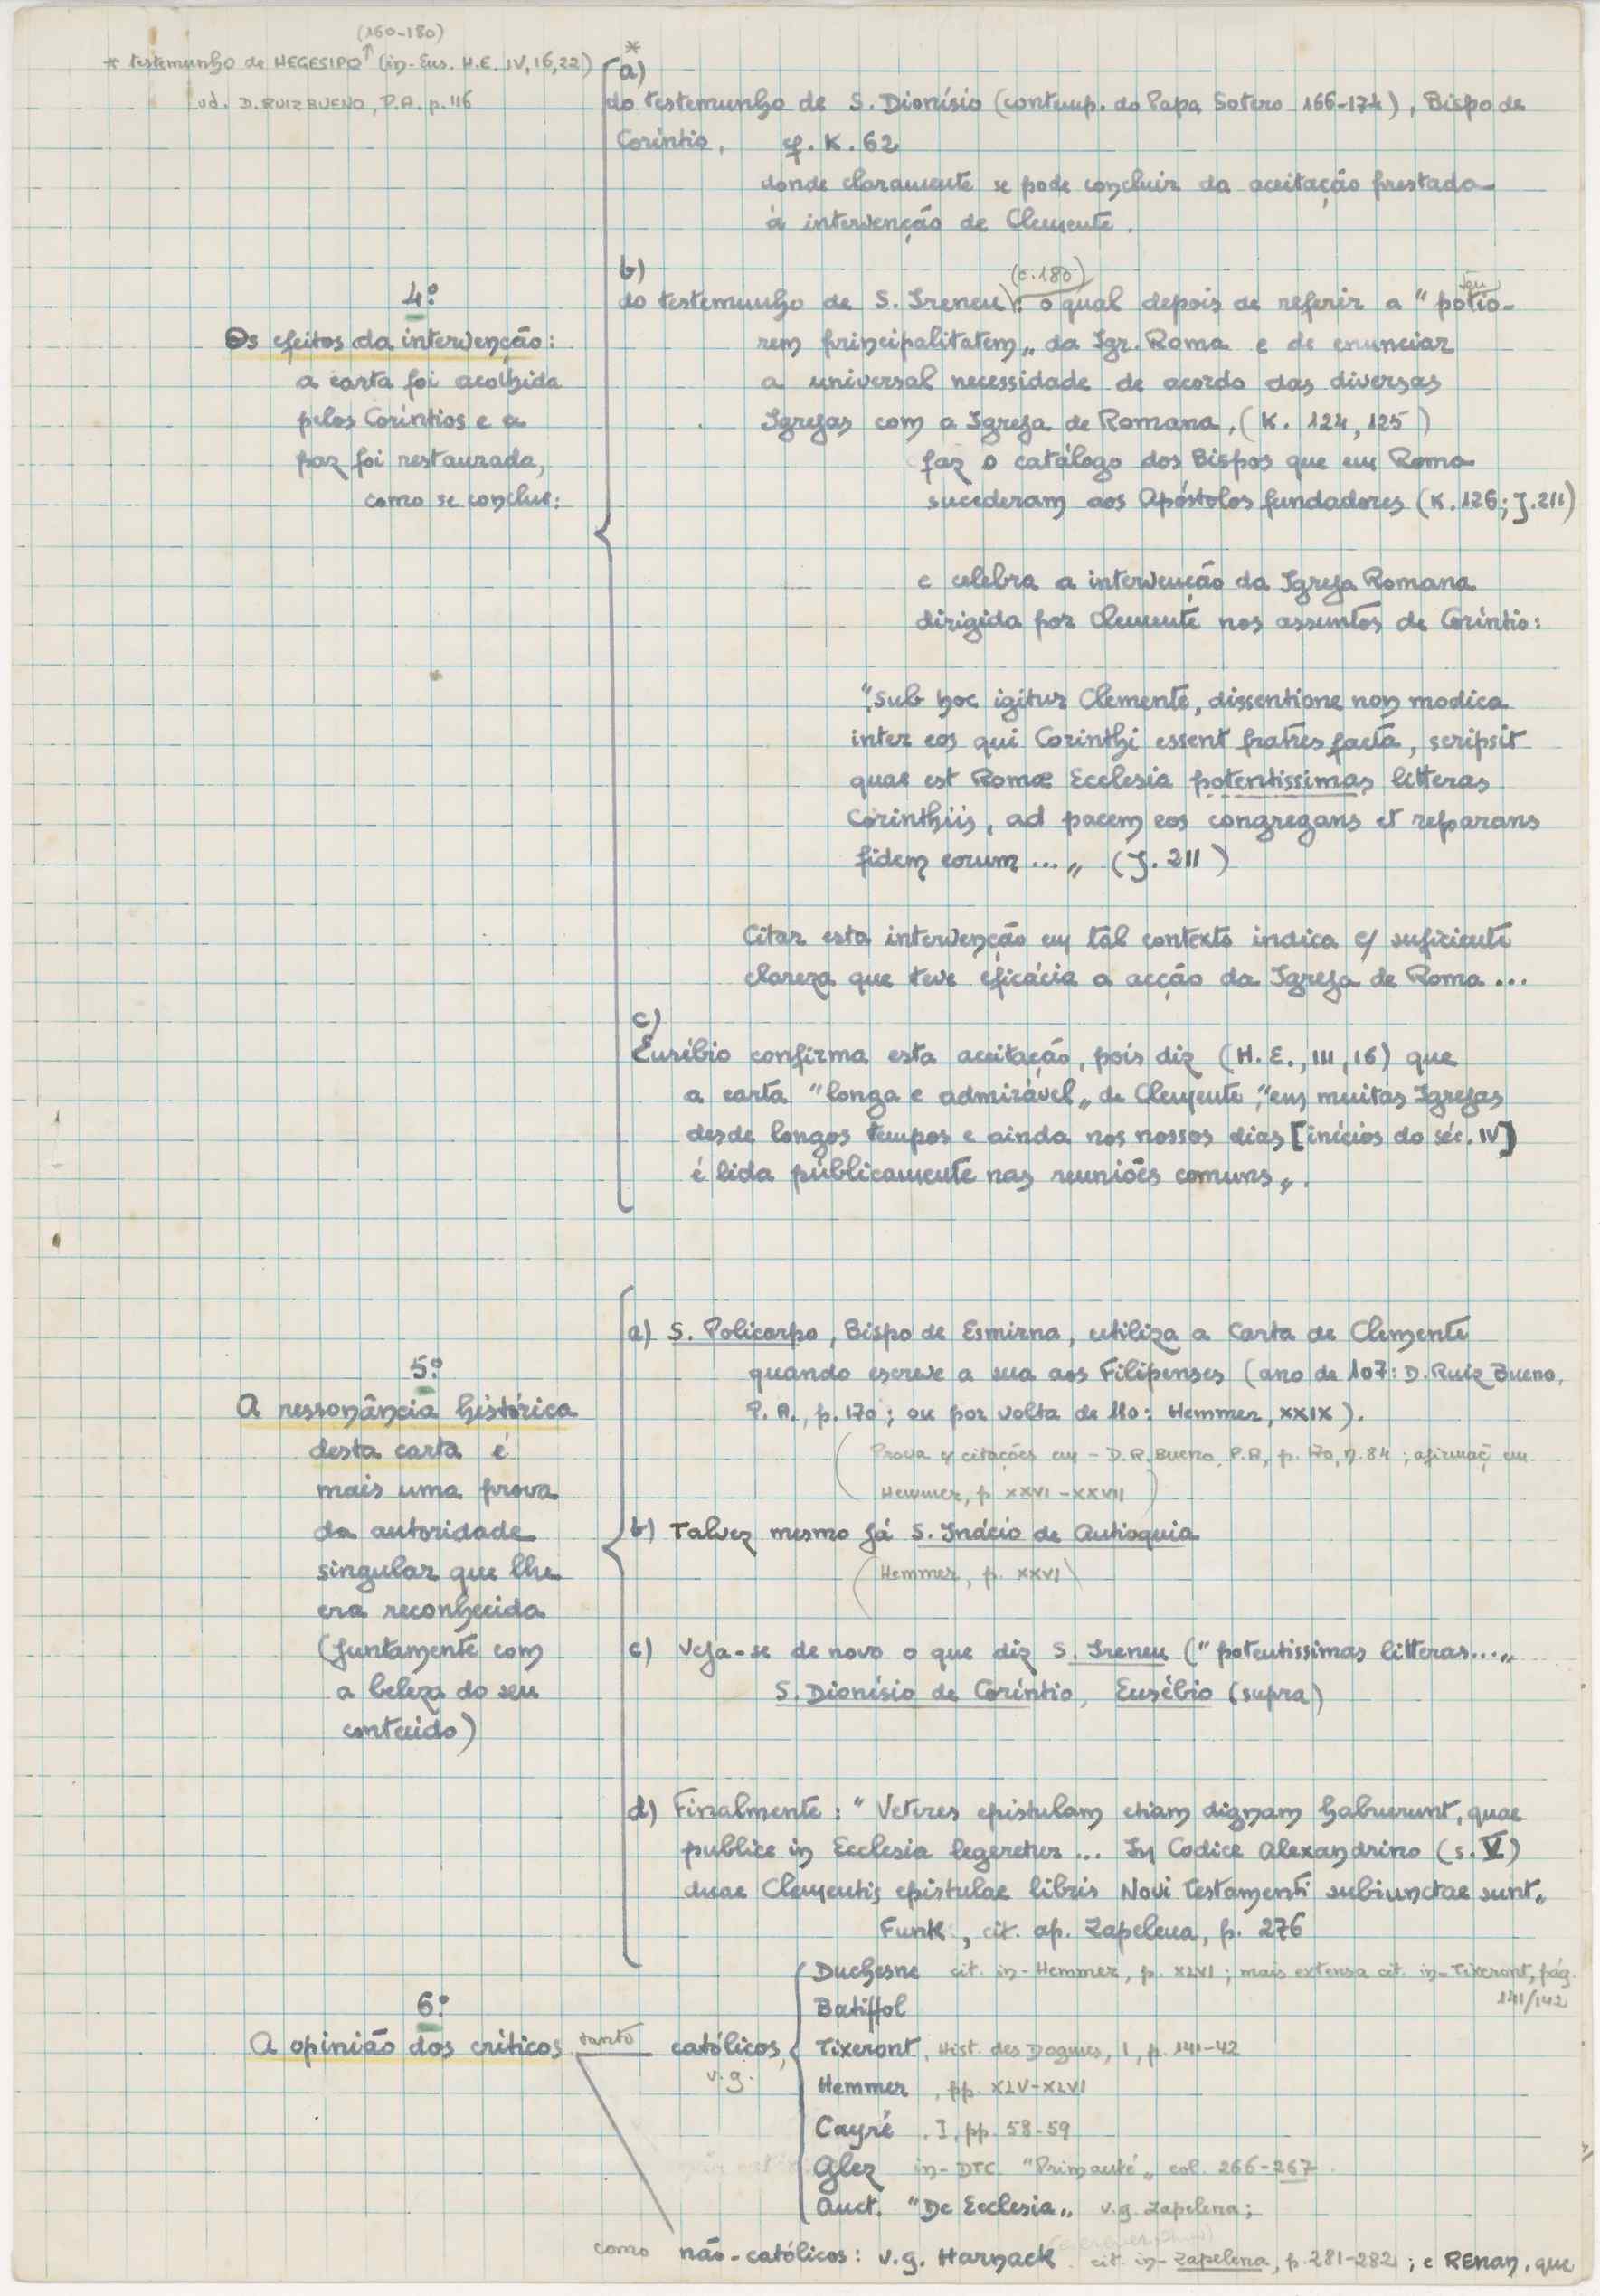 (160-180)
* testemunho de HEGESIPO ↑ (in-Eus. H.E. IV,16,22)
vd. D. RUIZ BUENO, P.A. p. 116
4º
Os efeitos da intervenção:
a carta foi acolhida
pelos Coríntios e a
paz foi restaurada,
como se conclue:
*
a)
do testemunho de S. Dionísio (contemp. do Papa Sotero 166-174), Bispo de
Coríntio, cf. K. 62
donde claramente se pode concluir da aceitação prestada
à intervenção de Clemente.
b)
(c. 180)
do testemunho de S. Ireneu: o qual depois de referir a "potio-
rem principalitatem„ da Igr. Roma e de enunciar
a universal necessidade de acordo das diversas
Igrejas com a Igreja de Romana, (K. 124, 125)
faz o catálogo dos Bispos que em Roma
sucederam aos Apóstolos fundadores (K. 126; J. 211)
e celebra a intervenção da Igreja Romana
dirigida por Clemente nos assuntos de Coríntio:
"Sub hoc igitur Clemente, dissentione non modica
inter eos qui Corinthi essent fratres facta, scripsit
quae est Romæ Ecclesia potentissimas litteras
Corinthiis, ad pacem eos congregans et reparans
fidem eorum ...„ (J. 211)
Citar esta intervenção em tal contexto indica c/ suficiente
clareza que teve eficácia a acção da Igreja de Roma ...
c)
Eusébio confirma esta aceitação, pois diz (H.E., III, 16) que
a carta "longa e admirável„ de Clemente, "em muitas Igrejas
desde longos tempos e ainda nos nossos dias [inícios do séc. IV]
é lida públicamente nas reuniões comuns„.
5º
A ressonância histórica
desta carta é
mais uma prova
da autoridade
singular que lhe
era reconhecida
(juntamente com
a beleza do seu
conteúdo)
a) S. Policarpo, Bispo de Esmirna, utiliza a Carta de Clemente
quando escreve a sua aos Filipenses (ano de 107: D. Ruiz Bueno,
P. A., p. 170; ou por volta de 110: Hemmer, XXIX).
(Prova c/ citações em - D. R. Bueno, P.A, p. 170, n. 84; afirmaç em
Hemmer, p. XXVI - XXVII)
b) Talvez mesmo já S. Inácio de Antioquia
(Hemmer, p. XXVI)
c) Veja-se de novo o que diz S. Ireneu ("potentissimas litteras...„
S. Dionísio de Coríntio, Eusébio (supra)
d) Finalmente: "Veteres epistulam etiam dignam habuerunt, quae
publice in Ecclesia legeretur ... In Codice Alexandrino (s. V)
duae Clementis epistulae libris Novi Testamenti subiunctae sunt„
Funk, cit. ap. Zapelena, p. 276
6º
A opinião dos críticos tanto católicos,
v.g.
Duchesne cit. in-Hemmer, p. XLVI; mais extensa cit. in-Tixeront, pág.
141/142
Batiffol
Tixeront, Hist. des Dogmes, I, p. 141-42
Hemmer, pp. XLV-XLVI
Cayré, I, pp. 58-59
Glez in-DTC "Primauté„ col. 266-267
Auct. "De Ecclesia„ v.g. Zapelena;
como não-católicos: v.g. Harnack cit. in-Zapelena, p. 281-282; e REnan, que